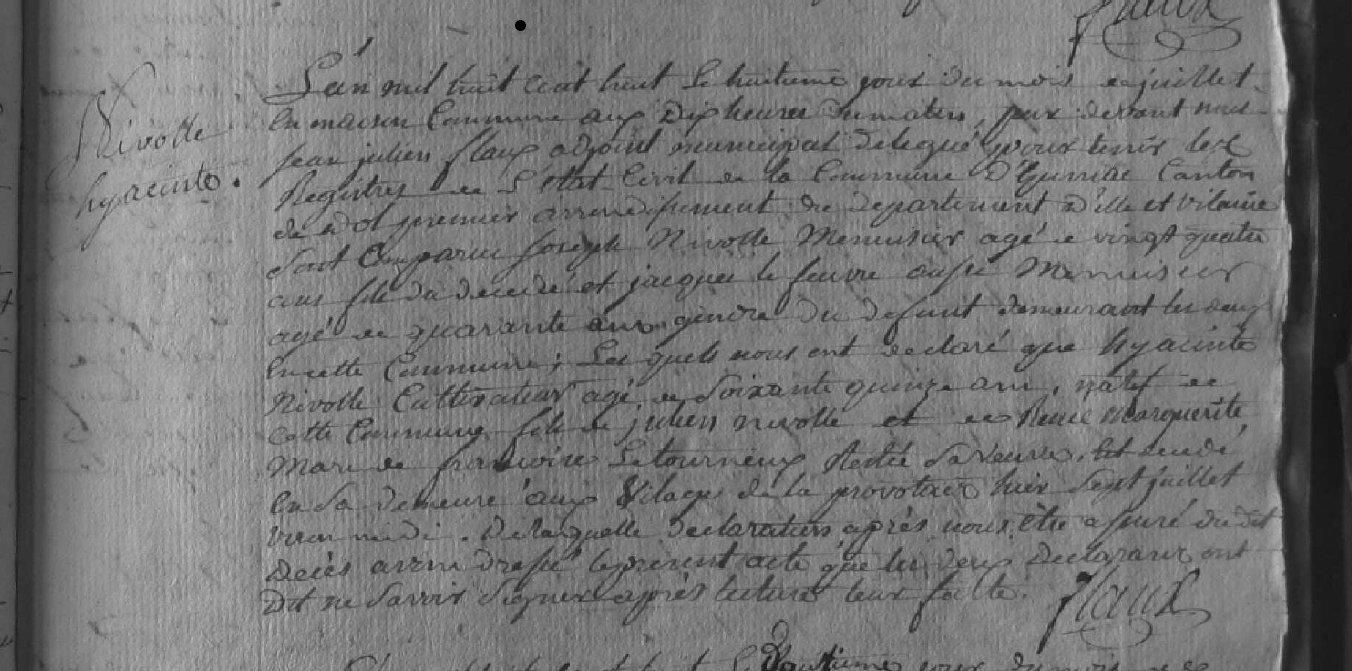 flaux
Nivolle
hyacinte.
L'an mil huit cent huit le huitieme jour du mois de juillet
En maison Commune aux Dix heures du matin, par devant nous
jean julien flaux adjoint municipal délégué pour tenir les
Registres de L'état Civil de la Commune D'Epiniac Canton
de dol premier arrondissement du departement d'ille et vilaine
Sont Comparu joseph Nivolle Menuisier agé de vingt quatre
ans fils du decedé et jacques le feuvre aussi Menuisier
agé de quarante ans gendre du defunt demeurant les deux
En cette Commune; Les quels nous ont declaré que hyacinte
Nivolle Cultivateur agé de Soixante quinze ans, natif de
cette Commune fils de julien nivolle et de Renée Marguerite
Mari de francoise Letourneux Restée Sa Veuve, Est decedé
En Sa demeure aux Vilages de la provotais hier Sept juillet
viron midi. De laquelle declaration après nous être assuré du dit
Décès avons dressé le present acte que les deux Declarans ont
Dit ne Savoir Signer après lecture leur faite.
flaux
jour du mois de